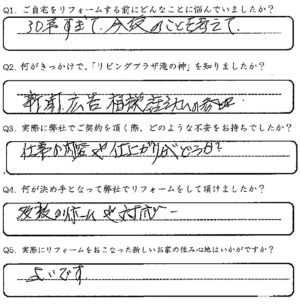 Q1. ご自宅をリフォームする前にどんなことに悩んでいましたか？
30年すぎて、今後のことを考えて
Q2. 何がきっかけで、「リビングプラザ滝の神」を知りましたか？
新聞広告 相談
Q3. 実際に弊社でご契約を頂く際、どのような不安をお持ちでしたか？
仕事の内容や仕上がりがどうか？
Q4. 何が決め手となって弊社でリフォームをして頂けましたか？
対応が
Q5. 実際にリフォームをおこなった新しいお家の住み心地はいかがですか？
よいです